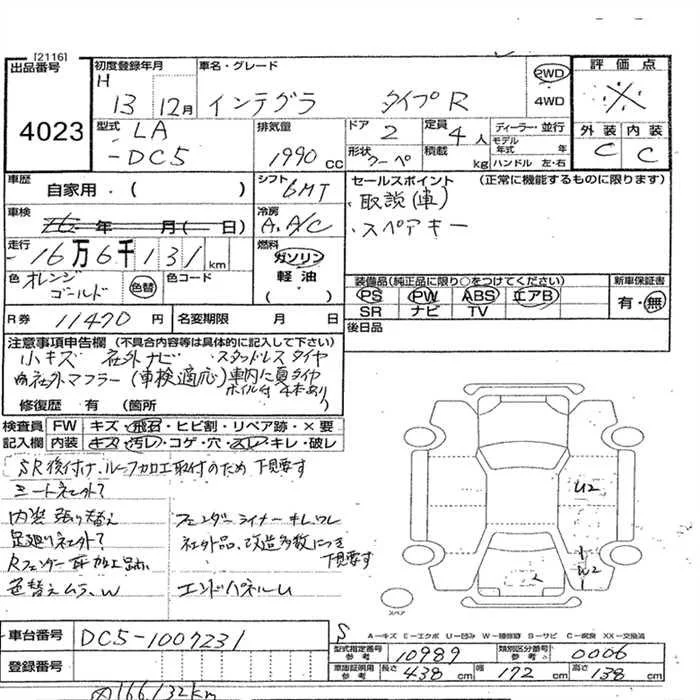 [2116]
出品番号
4023
初度登録年月
H 13 12月
車名・グレード
インテグラ タイプR
2WD
4WD
評価点
※
外装 内装
C C
型式
LA
-DC5
排気量
1990 cc
ドア
2
定員
4人
ディーラー・並行
モデル年式 年
形状
クーペ
積載
kg
ハンドル 左・右
車歴
自家用・( )
シフト
6MT
セールスポイント (正常に機能するものに限ります)
・取説(車)
・スペアキー
車検
年 月( 日)
冷房
A.A/C
走行
16万6千131km
燃料
ガソリン
軽油
( )
色
オレンジ
ゴールド
色替
色コード
装備品(純正品に限り○をつけてください)
PS PW ABS エアB
SR ナビ TV
新車保証書
有・無
R券 11470円
名変期限 月 日
後日品
注意事項申告欄 (不具合内容等は具体的に記入して下さい)
小キズ 社外ナビ ・スタッドレスタイヤ
社外マフラー(車検適応)車内に夏タイヤ
ホイル付 4本あり
修復歴 有 (箇所 )
検査員 FW キズ・飛石・ヒビ割・リペア跡・×要
記入欄 内装 キズ・汚レ・コゲ・穴・スレ・キレ・破レ
SR後付け、ルーフ加工取付のため下見要す
シート社外?
内装張り替え
足廻り社外?
Rフェンダー耳加工跡
色替えムラ、W
フェンダーライナーキレ、ワレ
社外品、改造多数につき
下見要す
エンドパネルU
U2
W2
スペア
S
A-キズ E-エクボ U-凹み W-補修跡 S-サビ C-腐食 XX-交換済
車台番号 DC5-1007231
登録番号
型式指定番号
参考
10989
類別区分番号
参考
0006
車庫証明用
参考
長さ 438cm
幅 172cm
高さ 138cm
166,132km